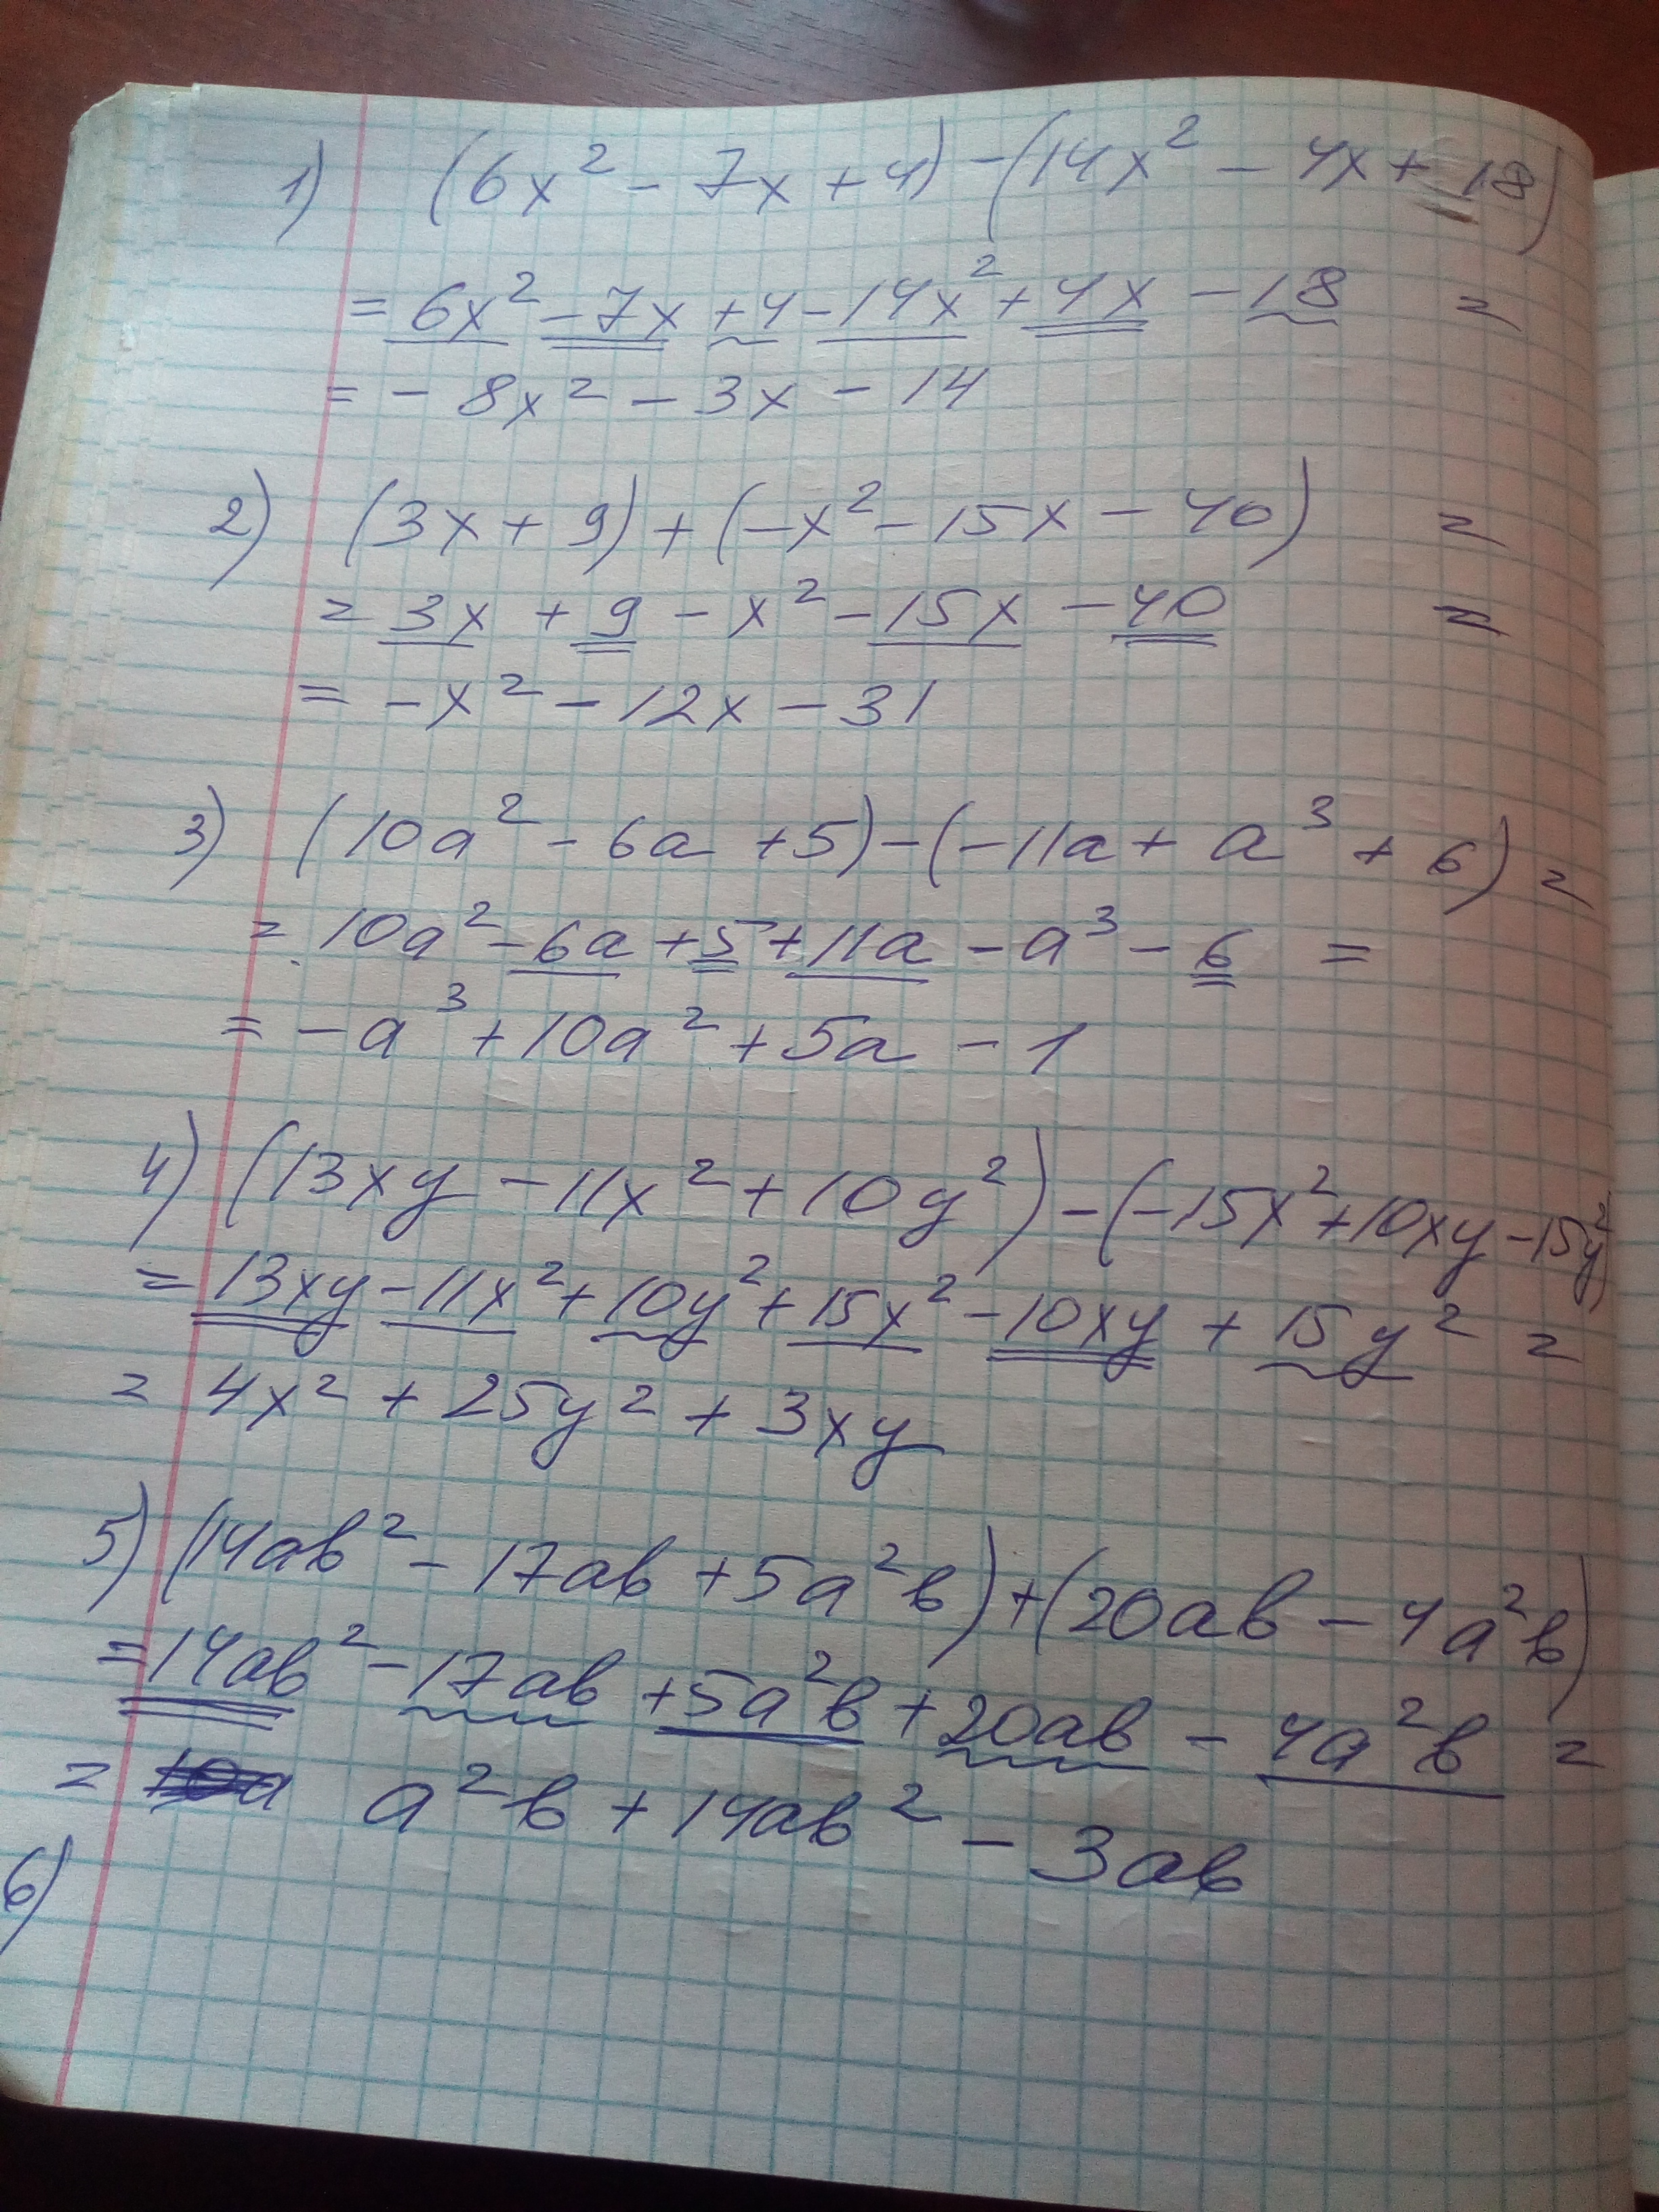 1) (6x² - 7x + 4) - (14x² - 4x + 18)
= 6x² - 7x + 4 - 14x² + 4x - 18 =
= - 8x² - 3x - 14
2) (3x + 9) + (-x² - 15x - 40) =
= 3x + 9 - x² - 15x - 40 =
= -x² - 12x - 31
3) (10a² - 6a + 5) - (-11a + a³ + 6) =
= 10a² - 6a + 5 + 11a - a³ - 6 =
= - a³ + 10a² + 5a - 1
4) (13xy - 11x² + 10y²) - (-15x² + 10xy - 15y²)
= 13xy - 11x² + 10y² + 15x² - 10xy + 15y² =
= 4x² + 25y² + 3xy
5) (14ab² - 17ab + 5a²b) + (20ab - 4a²b)
= 14ab² - 17ab + 5a²b + 20ab - 4a²b =
= a²b + 14ab² - 3ab
6)